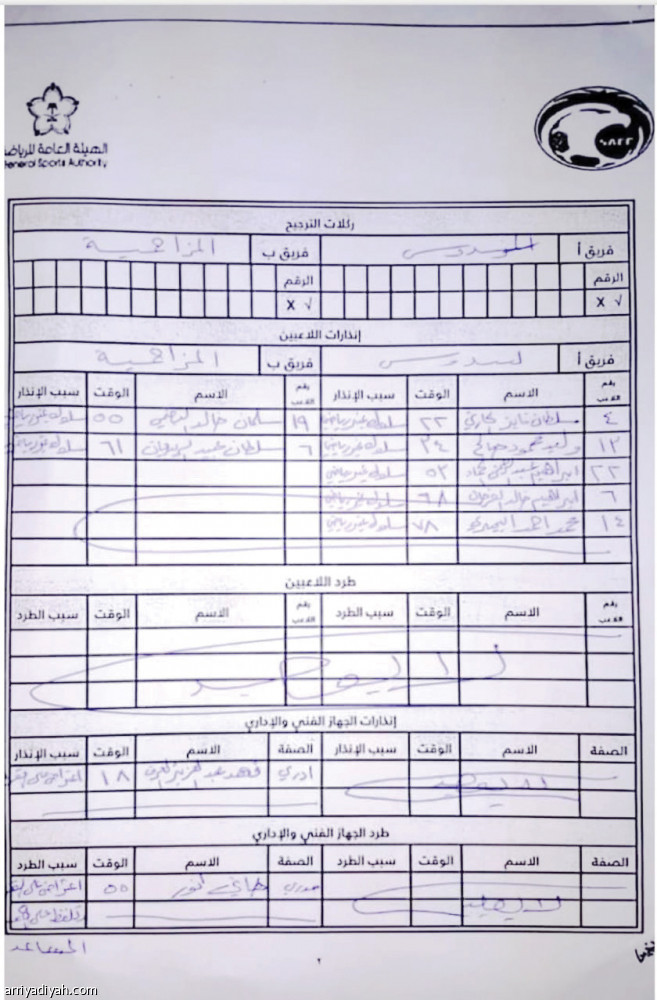 الهيئة العامة للرياضة
General Sports Authority
SAFF
ركلات الترجيح
فريق أ السدوس فريق ب المزاحمية
الرقم الرقم
√ X √ X
إنذارات اللاعبين
فريق أ السدوس فريق ب المزاحمية
رقم اللاعب الاسم الوقت سبب الإنذار رقم اللاعب الاسم الوقت سبب الإنذار
٤ سلطان فايز ٢٢ سلوك غير رياضي ١٩ سلمان خالد ٥٥ سلوك غير رياضي
١٢ وليد محمود صالح ٣٤ سلوك غير رياضي ٦ سلطان عبيد ٦١ سلوك غير رياضي
٢٢ ابراهيم ٥٣ سلوك غير رياضي
٦ ابراهيم خالد ٦٨ سلوك غير رياضي
١٤ محمد احمد ٧٨ سلوك غير رياضي
طرد اللاعبين
رقم اللاعب الاسم الوقت سبب الطرد رقم اللاعب الاسم الوقت سبب الطرد
لا يوجد
إنذارات الجهاز الفني والإداري
الصفة الاسم الوقت سبب الإنذار الصفة الاسم الوقت سبب الإنذار
لا يوجد اداري فهد عبدالعزيز ١٨ اعتراض على
طرد الجهاز الفني والإداري
الصفة الاسم الوقت سبب الطرد الصفة الاسم الوقت سبب الطرد
لا يوجد مدرب هاني انور ٥٥ اعتراض على
المساعد
٢
arriyadiyah.com